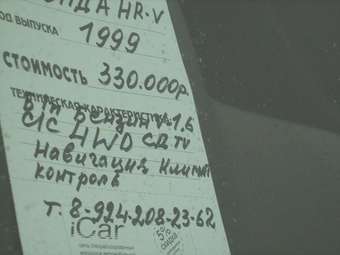 НДА HR-V
ОД ВЫПУСКА 1999
СТОИМОСТЬ 330.000р
ТЕХНИЧЕСКАЯ ХАРАКТЕРИСТИКА
бензин V-1.6
С/С 4WD CD TV
Навигация Климат
контроль
т. 8-924-208-23-62
iCar
5%